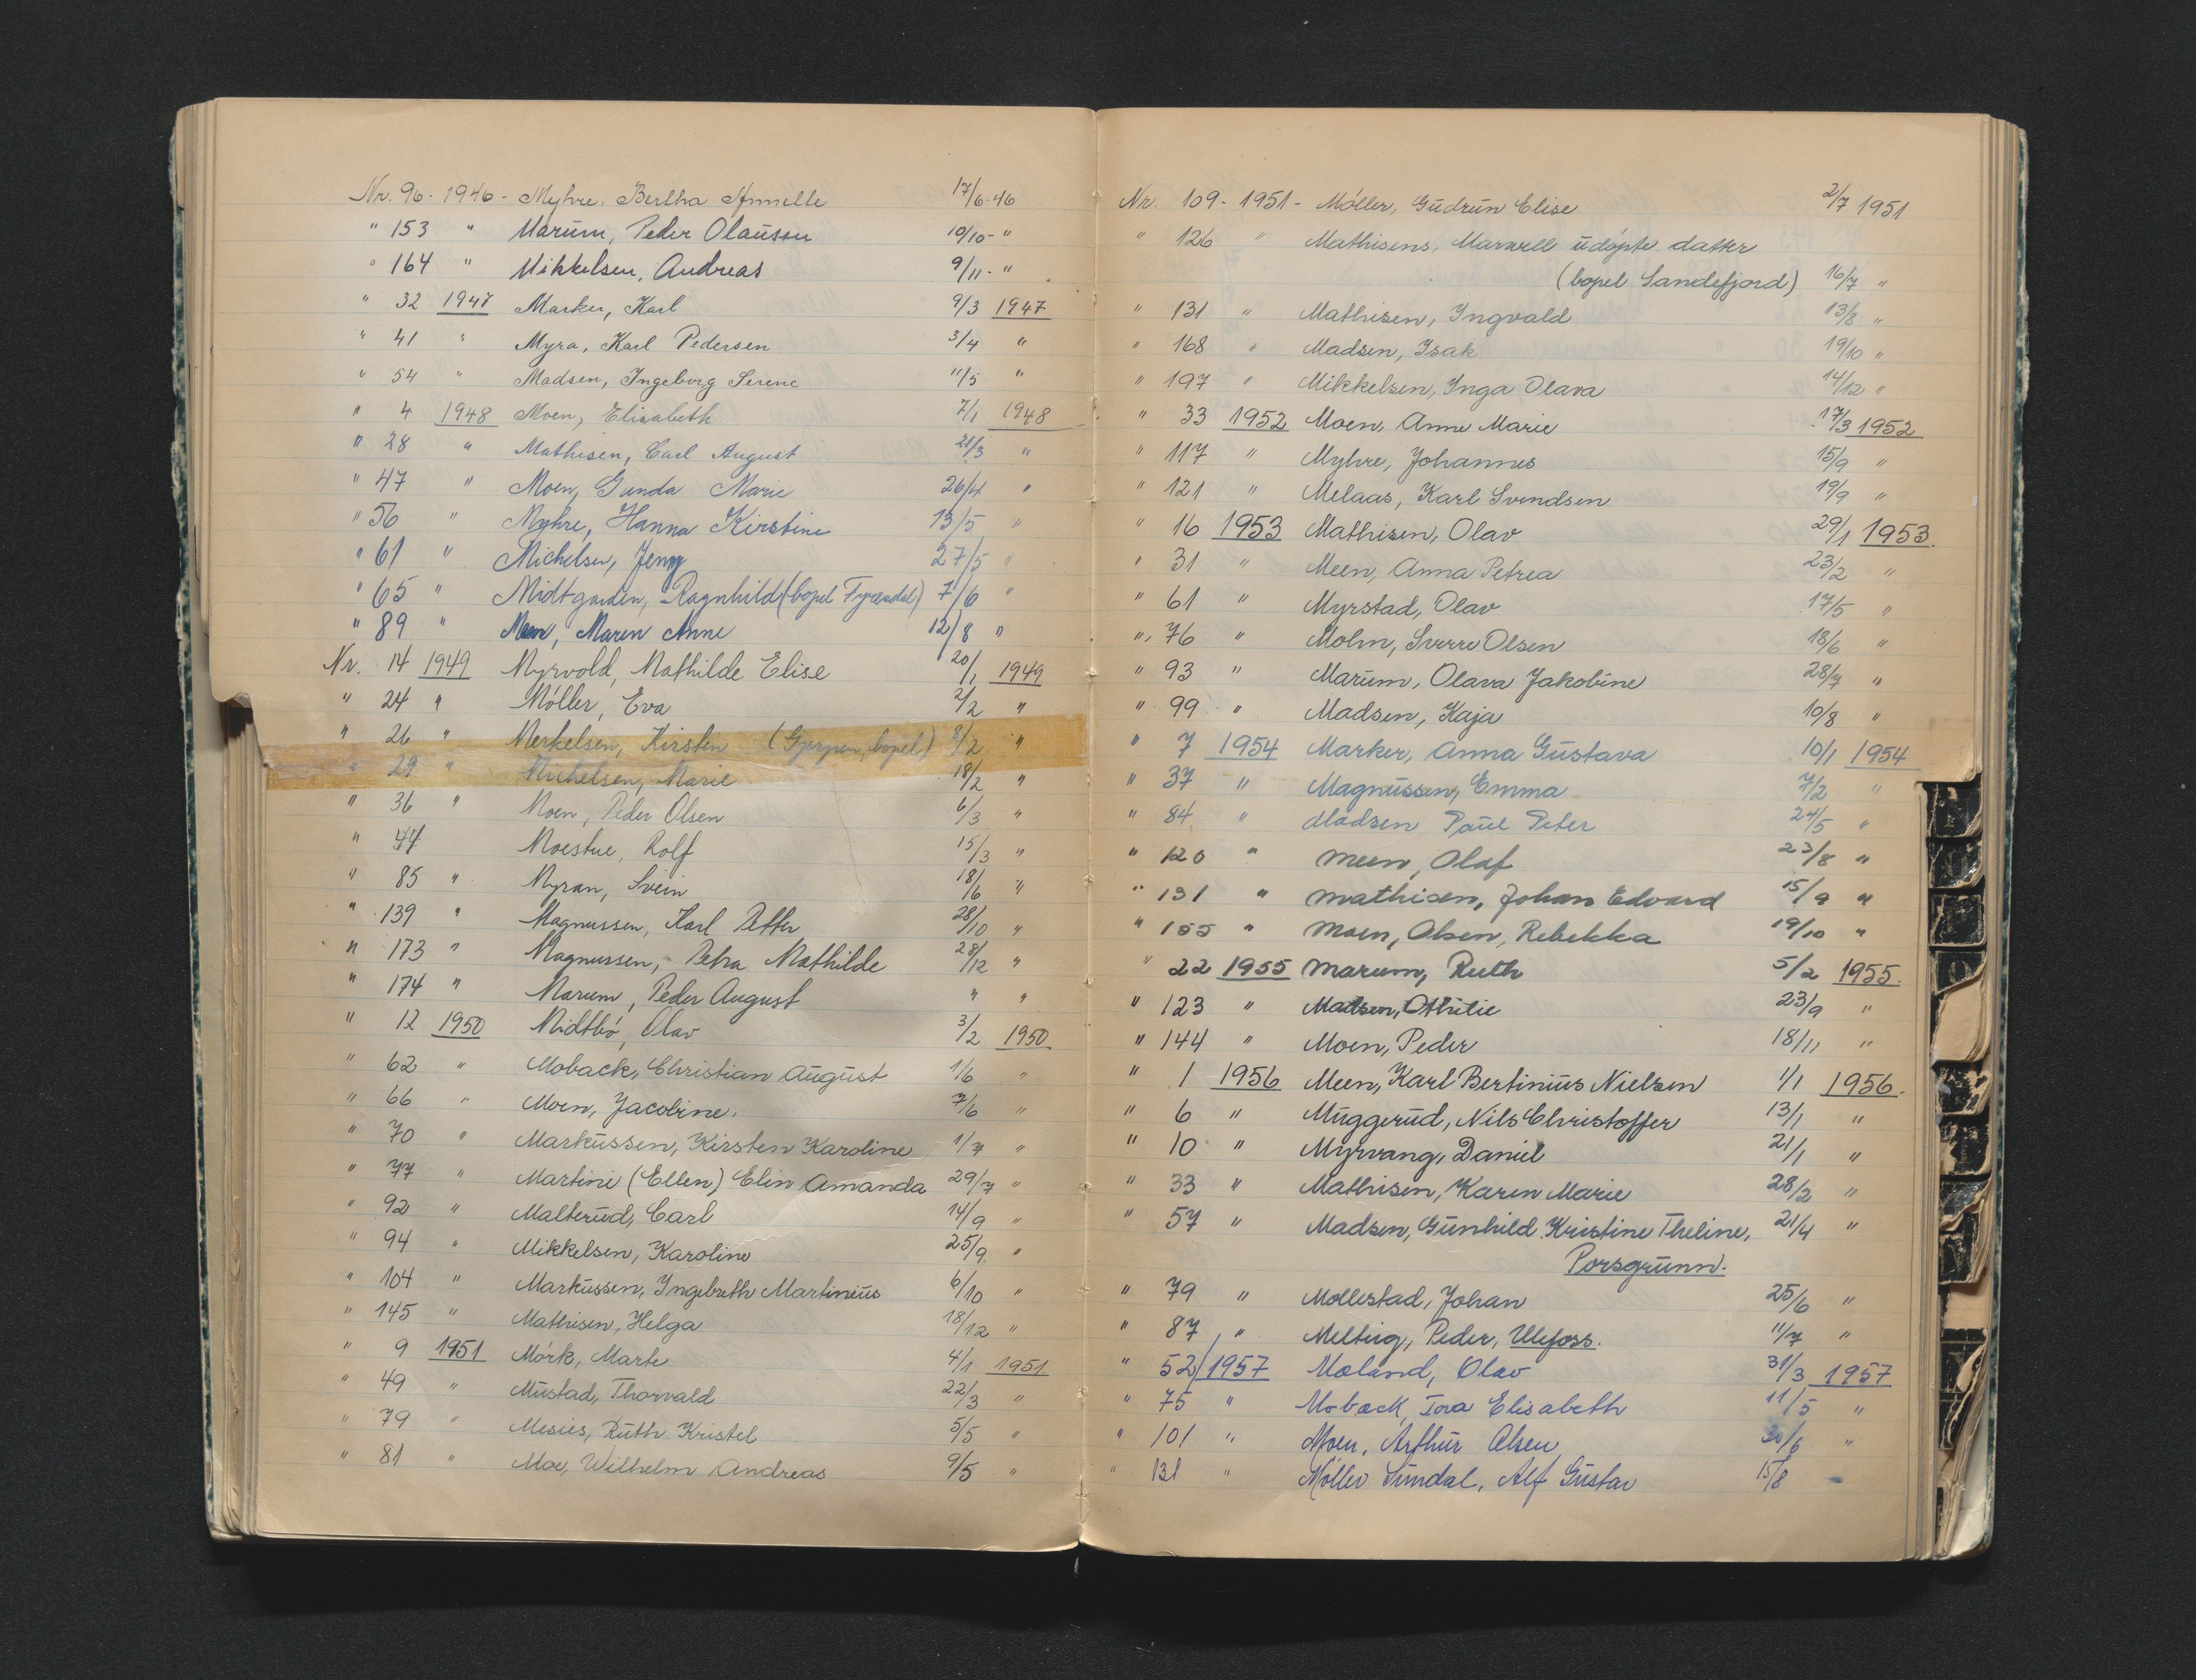 Nr. 96 - 1946 - Myhre, Bertha Annette 17/6-46
" 153 " Marum, Peder Olaussen 10/10- "
" 164 " Mikkelsen, Andreas 9/11- "
" 32 1947 Marker, Karl 9/3 1947
" 41 " Myra, Karl Pedersen 3/4 "
" 54 " Madsen, Ingeborg Serene 11/5 "
" 4 1948 Moen, Elisabeth 7/1 1948
" 28 " Mathisen, Carl August 21/3 "
" 47 " Moen, Gunda Marie 26/4 "
" 56 " Myhre, Hanna Kirstine 13/5 "
" 61 " Michelsen, Jenny 27/5 "
" 65 " Midtgarden, Ragnhild (bopel Fyresdal) 7/6 "
" 89 " Maren Anne 12/8 "
Nr. 14 1949 Myrvold, Mathilde Elise 20/1 1949
" 24 " Móller, Eva 2/2 "
" 26 " Merkelsen, Kirsten (Gjerpen, bopel) 8/2 "
" 29 " Michelsen, Marie 18/2 "
" 36 " Moen, Peder Olsen 6/3 "
" 44 " Moestue, Rolf 15/3 "
" 85 " Myran, Svein 18/6 "
" 139 " Magnussen, Karl Petter 28/10 "
" 173 " Magnussen, Petra Mathilde 28/12 "
" 174 " Marum, Peder August " "
" 12 1950 Midtbó, Olav 3/2 1950
" 62 " Moback, Christian August 1/6 "
" 66 " Moen, Jacobine. 7/6 "
" 70 " Markussen, Kirsten Karoline 1/7 "
" 77 " Martini (Ellen) Elin Amanda 29/7 "
" 92 " Malterud, Carl 14/9 "
" 94 " Mikkelsen, Karoline 25/9 "
" 104 " Markussen, Ingebreth Martinius 6/10 "
" 145 " Mathisen, Helga 18/12 "
" 9 1951 Mórk, Marte 4/1 1951
" 49 " Mustad, Thorvald 22/3 "
" 79 " Mesics, Ruth Kristel 5/5 "
" 81 " Moe, Wilhelm Andreas 9/5 "
Nr. 109 - 1951 - Móller, Gudrun Elise 2/7 1951
" 126 " Mathisens, Marwell udópte datter
(bopel Sandefjord) 16/7 "
" 131 " Mathisen, Ingvald 13/8 "
" 168 " Madsen, Isak 19/10 "
" 197 " Mikkelsen, Inga Olava 14/12 "
" 33 1952 Moen, Anne Marie 17/3 1952
" 117 " Myhre, Johannes 15/9 "
" 121 " Melaas, Karl Svendsen 19/9 "
" 16 1953 Mathisen, Olav 29/1 1953.
" 31 " Meen, Anna Petrea 23/2 "
" 61 " Myrstad, Olav 17/5 "
" 76 " Molin, Sverre Olsen 18/6 "
" 93 " Marum, Olava Jakobine 28/7 "
" 99 " Madsen, Kaja 10/8 "
" 7 1954 Marker, Anna Gustava 10/1 1954
" 37 " Magnussen, Emma 7/2 "
" 84 " Madsen Paul Peter 24/5 "
" 120 " Meen, Olaf 23/8 "
" 131 " Mathisen, Johan Edvard 15/9 "
" 155 " Moen, Olsen, Rebekka 19/10 "
" 22 1955 Marum, Ruth 5/2 1955.
" 123 " Madsen, Othilie 23/9 "
" 144 " Moen, Peder 18/11 "
" 1 1956 Meen, Karl Bertinius Nielsen 1/1 1956.
" 6 " Muggerud, Nils Christoffer 13/1 "
" 10 " Myrvang, Daniel 21/1 "
" 33 " Mathisen, Karen Marie 28/2 "
" 57 " Madsen, Gunhild Kristine Theline, 21/4 "
Porsgrunn.
" 79 " Mollestad, Johan 25/6 "
" 87 " Melting, Peder, Ulefoss. 11/7 "
" 52/1957 Moland, Olav 31/3 1957
" 75 " Moback, Tova Elisabeth 11/5 "
" 101 " Moen, Arthur Olsen 30/6 "
" 131 " Móller Sundal, Alf Gustav 15/8